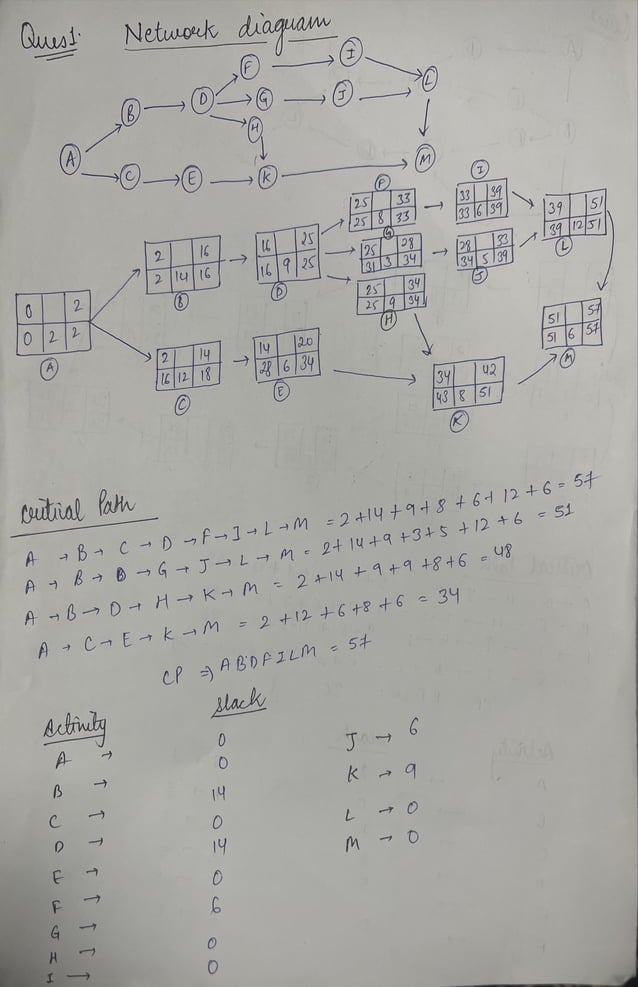 Ques1. Network diagram
F I
B D G J L
H
A M
C E K
F I
25 33 33 39
25 8 33 33 6 39
G
2 16 16 25 25 28 28 33 39 51
2 14 16 16 9 25 31 3 34 34 5 39 39 12 51
B D J L
25 34
25 9 34
H
0 2 51 57
0 2 2 51 6 57
A M
2 14 14 20 34 42
16 12 18 28 6 34 43 8 51
C E K
critical Path
A → B → C → D → F → I → L → M = 2+14+9+8+6+12+6 = 57
A → B → D → G → J → L → M = 2+14+9+3+5+12+6 = 51
A → B → D → H → K → M = 2+14+9+9+8+6 = 48
A → C → E → K → M = 2+12+6+8+6 = 34
CP ⇒ ABDFILM = 57
Activity Slack
A → 0 J → 6
B → 0 K → 9
C → 14 L → 0
D → 0 M → 0
E → 14
F → 0
G → 6
H → 0
I → 0